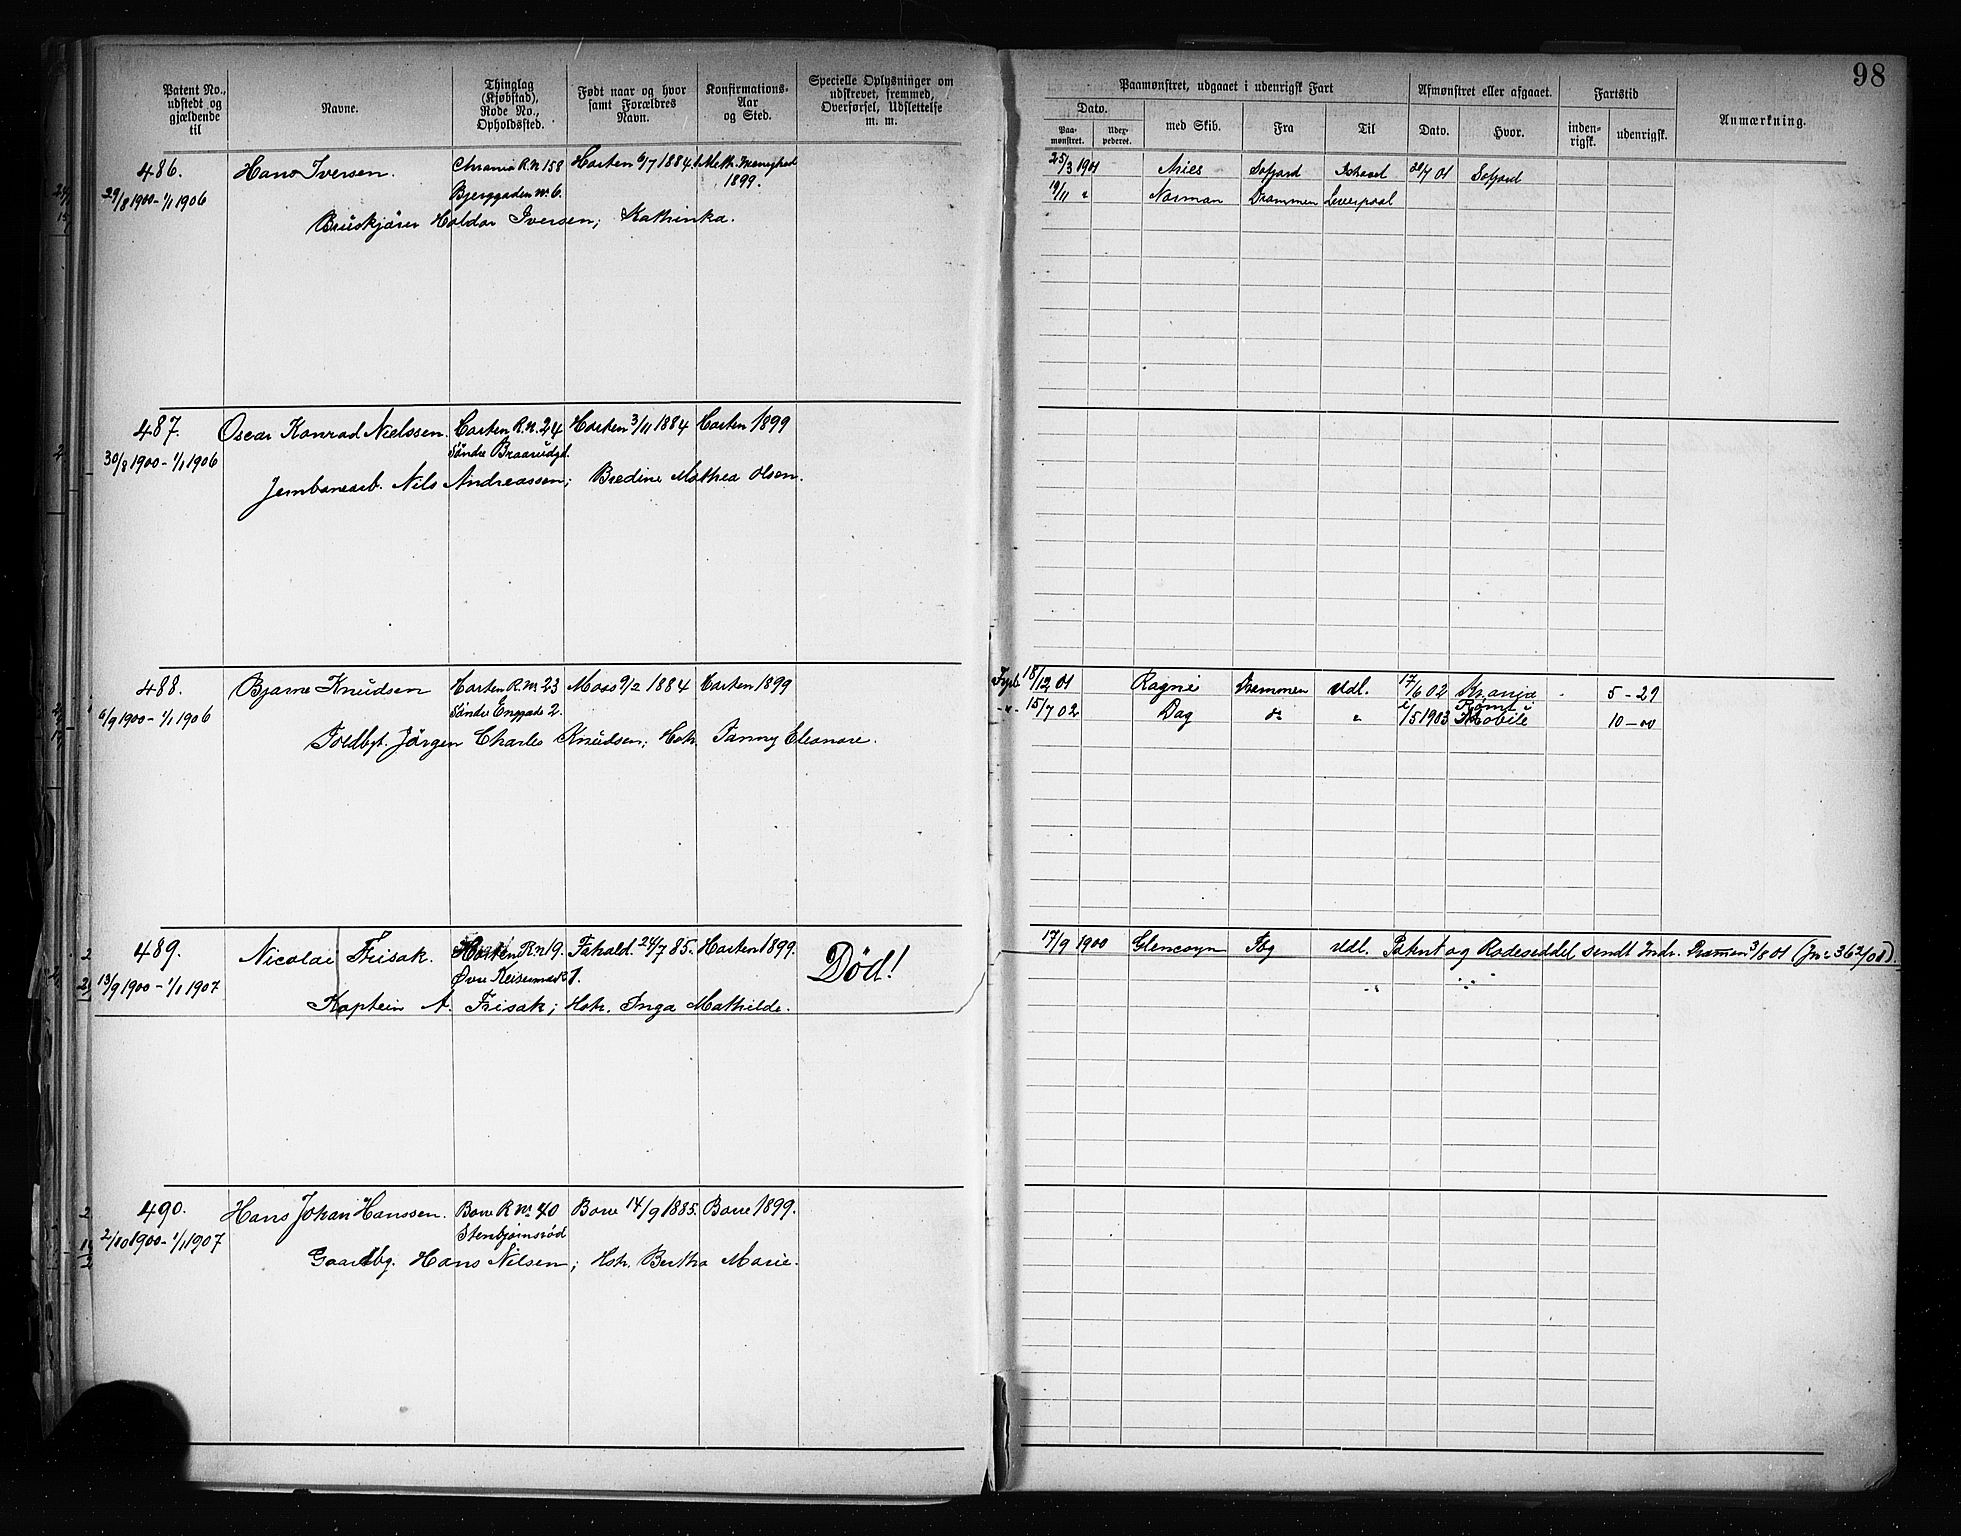 98
Patent No., udstedt og gjældende til
Navne.
Thinglag (Kjøbstad), Rode No., Opholdssted.
Født naar og hvor samt Forældres Navn.
Konfirmations-Aar og Sted.
Specielle Oplysninger om udskrevet, fremmed, Overførsel, Udslettelse m. m.
Paamønstret, udgaaet i udenrigsk Fart
Afmønstret eller afgaaet.
Fartstid
Anmærkning.
Dato.
Paa-mønstret.
med Skib.
Fra
Til
Dato.
Hvor.
inden-rigsk.
udenrigsk.
486. Hans Iversen. Chrania R.N 158 Horten 6/7 1884. Meth. Menighed 1899.
29/8 1900 - 1/1 1906 Bjerggaden No 6.
Haldor Iversen; Kathinka.
25/3 1901 Aries Sofjord 01 Sofjord
19/11 " Norman Drammen Liverpool
487. Oscar Konrad Nielssen. Horten R.N. 24 Horten 3/11 1884 Horten 1899
30/8 1900 - 1/1 1906 Søndre
Jernbanearb. Nils Andreassen; Bredine Mathea Olsen.
488. Bjarne Knudsen Horten R.No 23 Moss 9/2 1884 Horten 1899
6/9 1900 - 1/1 1906 Søndre Enggade 2.
Toldbgt. Jørgen Charles Knudsen; Hstr. Fanny Eleonore.
18/12 01 Ragni Drammen Udl. 17/6 02 Krania 5 - 29
15/7 02 Dag do " /5 1903 Rømt i Mobile 10 - 00
489. Nicolai Frisak. Horten R.N 19. 24/7 85. Horten 1899. Død!
13/9 1900 - 1/1 1907 Øvre Keisemark 1.
Kaptein A. Frisak; Hstr. Inga Mathilde.
17/9 1900 Glencoyn Tbg Udl. Patent og Rodeseddel sendt Indr. Drammen 3/8 01 (Jn: 362/01).
490. Hans Johan Hanssen. Borre R No 40 Borre 14/9 1885. Borre 1899.
2/10 1900 - 1/1 1907 Stenbjørnsrød
Gaardbg. Hans Nilsen; Hstr. Bertha Marie.